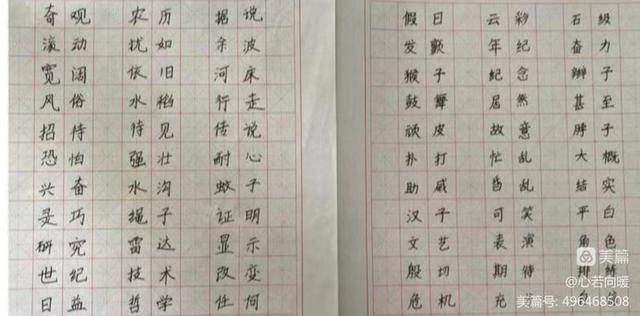 奇观 农历 据说
滚动 扰如 余波
宽阔 依旧 河床
风俗 水稻 行走
招待 待见 传说
恐怕 强壮 耐心
兴奋 水沟 蚊子
灵巧 绳子 证明
研究 雷达 显示
世纪 技术 改变
日益 哲学 任何
假日 云彩 石级
发颤 年纪 奋力
猴子 纪念 辫子
鼓舞 居然 甚至
顽皮 故意 胖子
扑打 忙乱 大概
助威 昏乱 结实
汉子 可笑 平白
文艺 表演 角色
殷切 期待 排
危机 充
美篇
@心若向暖
美篇号: 496468508